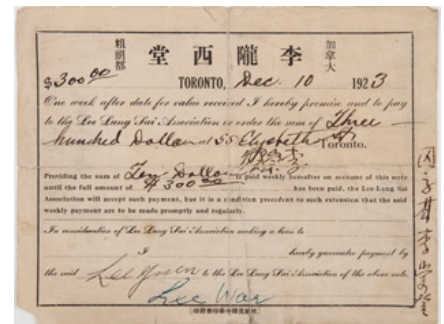 加拿大
李隴西堂
賴明都
$300 00 TORONTO, Dec. 10 1923
One week after date for value received I hereby promise and to pay
to the Lee Lung Sai Association or order the sum of Three
hundred Dollars at 55 Elizabeth St. Toronto.
Providing the sum of Ten Dollars is paid weekly hereafter on account of this note
until the full amount of $300.00 has been paid, the Lee Lung Sai
Association will accept such payment, but it is a condition precedent to such extension that the said
weekly payment are to be made promptly and regularly.
In consideration of Lee Lung Sai Association making a loan to
I hereby guarantee payment by
the said Lee to the Lee Lung Sai Association of the above note.
Lee Wah